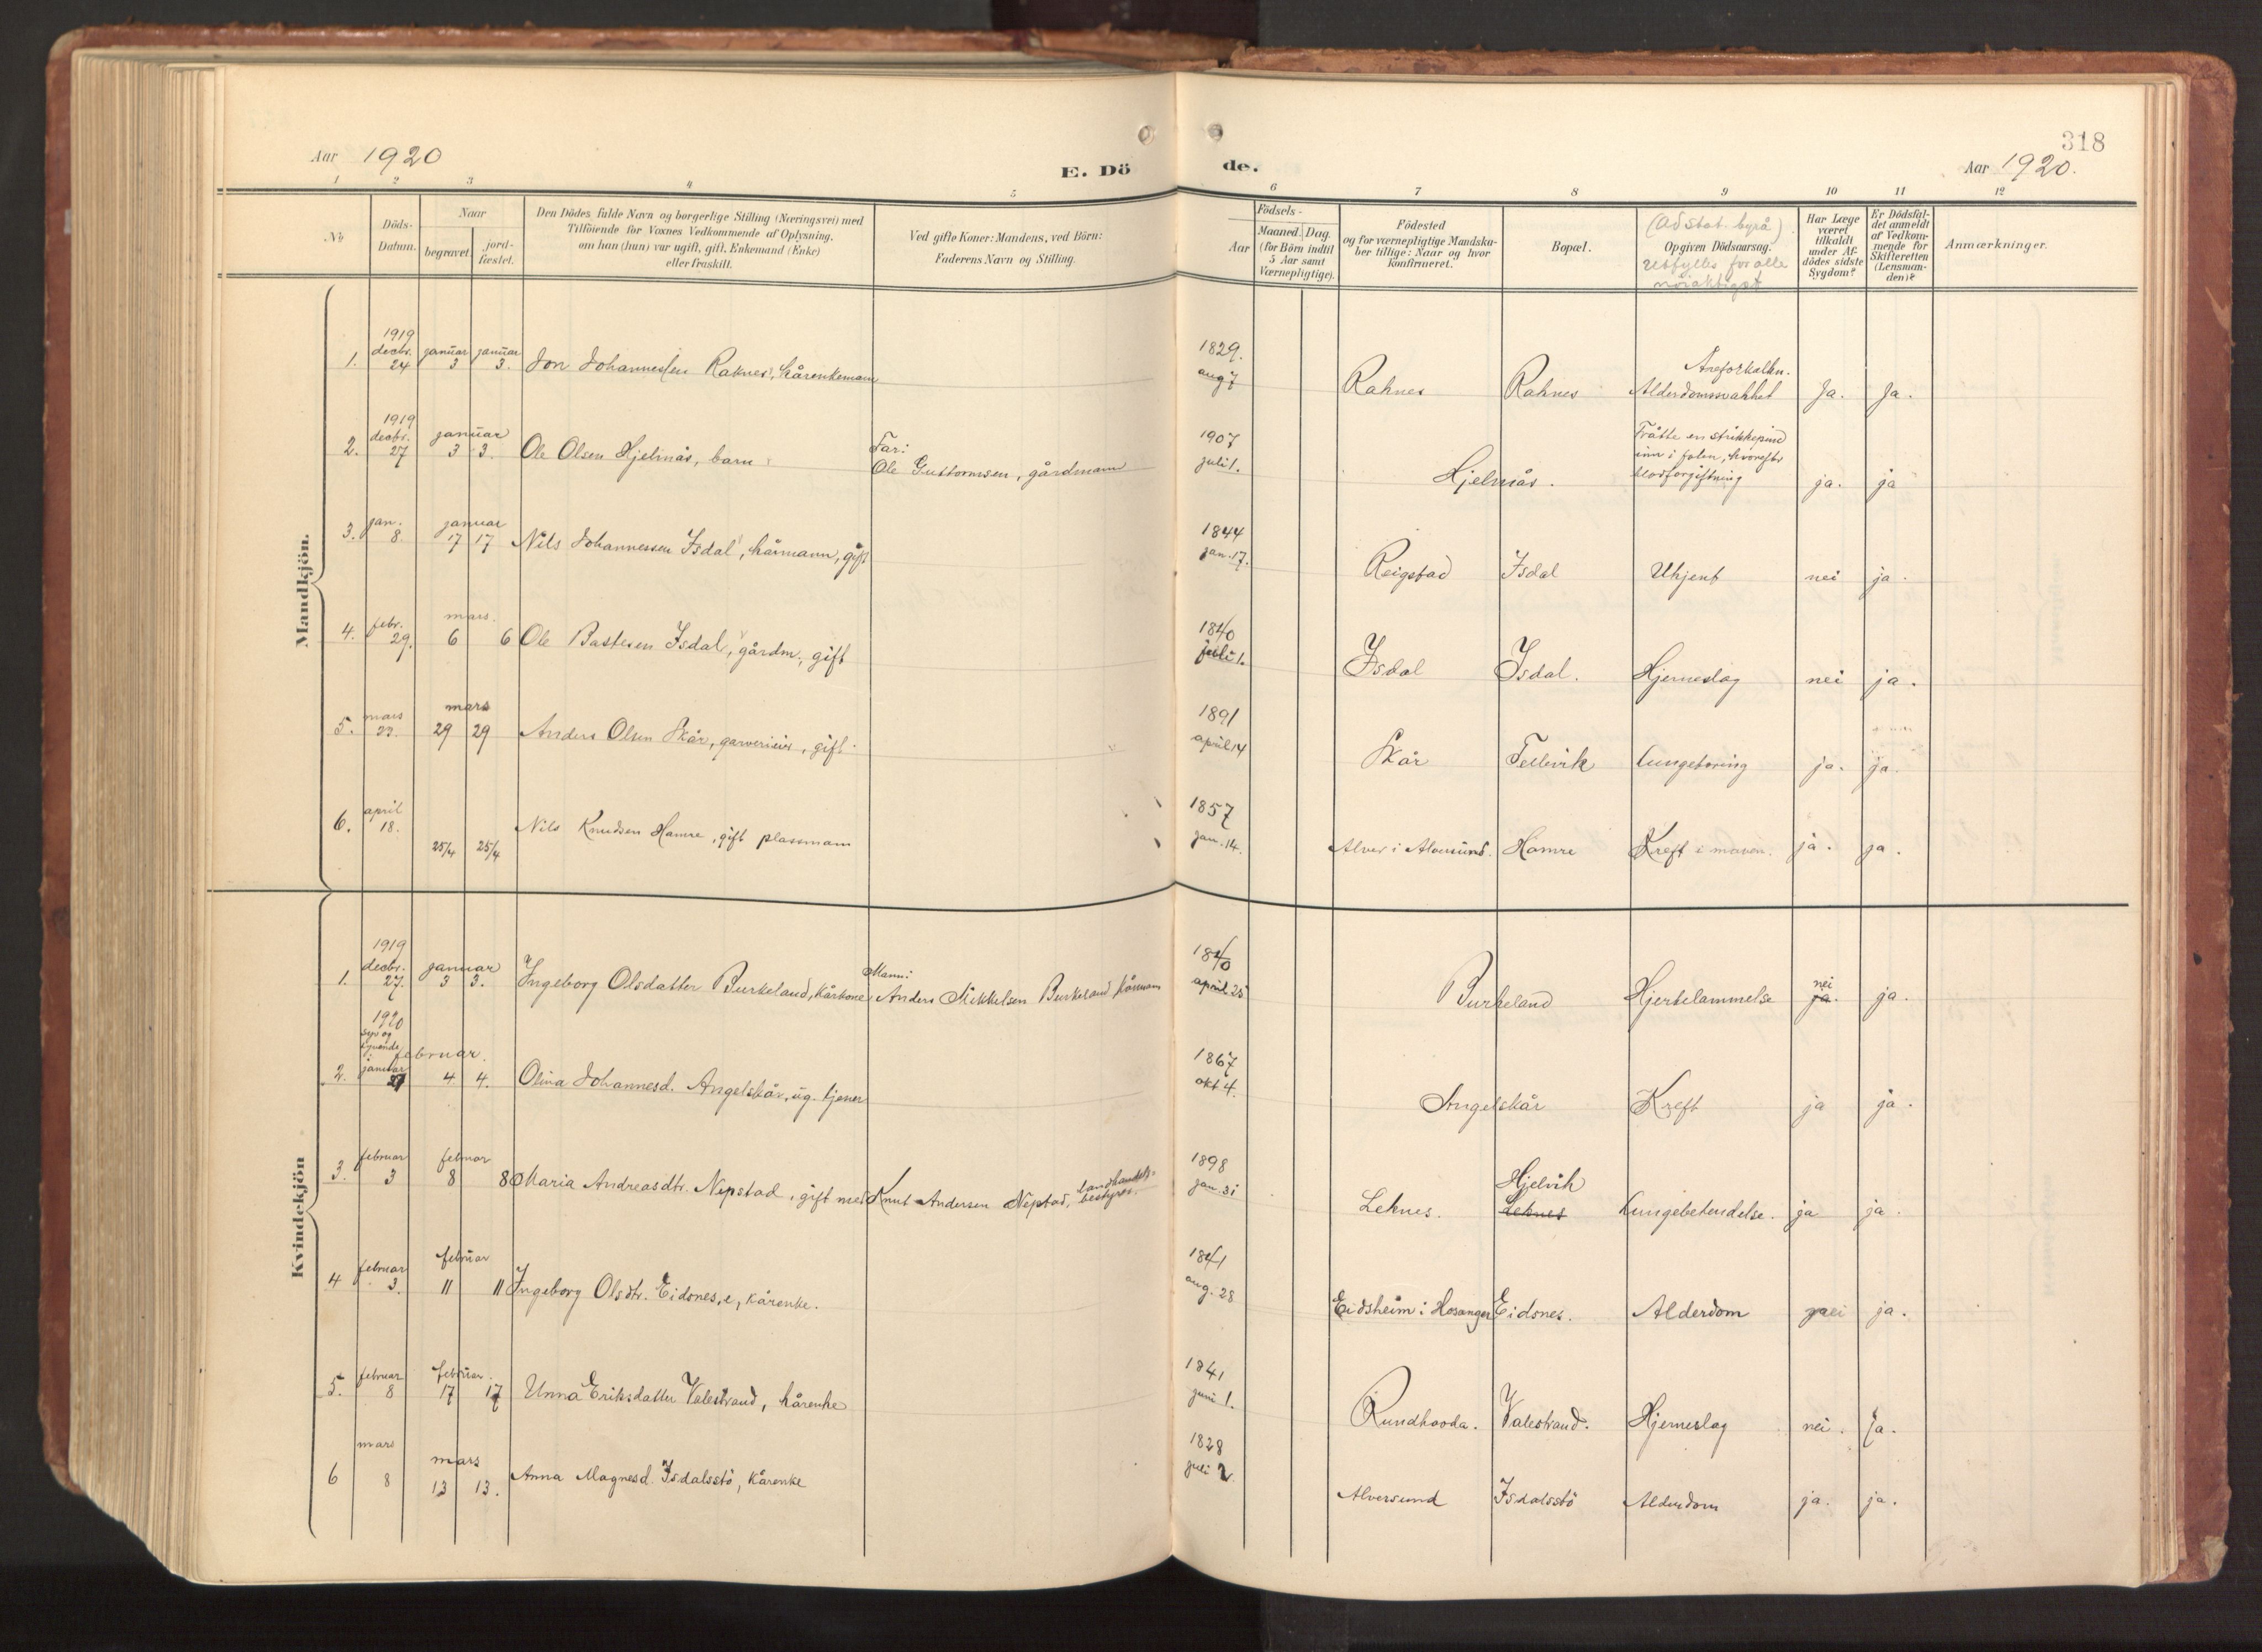 318
Aar 1920
E. Döde.
Aar 1920.
1 2 3 4 5 6 7 8 9 10 11 12
No
Döds-Datum.
Naar
begravet.
jord-fæstet.
Den Dödes fulde Navn og borgerlige Stilling (Næringsvei) med
Tilföiende for Voxnes Vedkommende af Oplysning,
om han (hun) var ugift, gift, Enkemand (Enke)
eller fraskilt.
Ved gifte Koner: Mandens, ved Börn:
Faderens Navn og Stilling.
Födsels-
Aar
Maaned. Dag.
(for Börn indtil
5 Aar samt
Værnepligtige).
Födested
og for værnepligtige Mandska-
ber tillige: Naar og hvor
konfirmeret.
Bopæl.
(Ad Stat. byrå)
Opgiven Dödsaarsag.
Utfylles for alle
nöiaktigst
Har Læge
været
tilkaldt
under Af-
dödes sidste
Sygdom?
Er Dödsfal-
det anmeldt
af Vedkom-
mende for
Skifteretten
(Lensman-
den)?
Anmærkninger.
Mandkjön.
1. 1919 decbr. 24 januar 3 januar 3. Jon Johannessen Raknes, kårenkemann 1829. aug 7 Raknes Raknes Åreforkalkn. Alderdomssvakhet Ja. Ja.
2. 1919 decbr. 27 januar 3 3. Ole Olsen Hjelmås, barn Far: Ole Guttormsen, gårdmann 1907 juli 1. Hjelmås. Trådte en strikkepind inn i foten, hvorefter blodforgiftning ja. ja
3. jan. 8. januar 17 17 Nils Johannessen Isdal, kårmann, gift 1844 jan. 17. Reigstad Isdal Ukjent nei ja.
4. febr. 29. mars. 6 6 Ole Bastesen Isdal, gårdm., gift 1840 juli 1. Isdal Isdal. Hjerneslag nei ja.
5. mars 23. mars 29 29 Anders Olsen Skår, garverieier, gift. 1891 april 14 Skår Tellevik Lungetæring ja. ja.
6. april 18. 25/4 25/4 Nils Knudsen Hamre, gift plassmann 1857 jan. 14. Alver i Alversund. Hamre Kreft i maven. ja. ja.
Kvindekjön
1. 1919 decbr. 27. januar 3 3. Ingeborg Olsdatter Burkeland, kårkone Mann: Anders Mikkelsen Burkeland kårmann 1840 april 25 Burkeland Hjertelammelse nei ja. ja.
2. 1920 syv og tyvende januar 27 februar. 4 4. Olina Johannesd. Angelskår, ug. tjener 1867 okt 4. Angelskår Kreft ja ja.
3. februar 3 februar 8 8 Maria Andreasdtr. Nepstad, gift med Knut Andersen Nepstad, landhandels-bestyrer. 1898 jan. 31 Leknes. Hjelvik Leknes Lungebetendelse. ja ja.
4 februar 3. februar 11 11 Ingeborg Olsdtr. Eidsnes, e, kårenke. 1841 aug. 28 Eidsheim i Hosanger Eidsnes. Alderdom nei ja.
5. februar 8 februar. 17 17 Unna Eriksdatter Valestrand, kårenke 1841 juni 1. Rundhovda. Valestrand. Hjerneslag nei. Ja.
6 mars 8 mars 13 13. Anna Magnesd. Isdalsstö, kårenke 1828 juli 2 Alversund Isdalsstö Alderdom ja. ja.